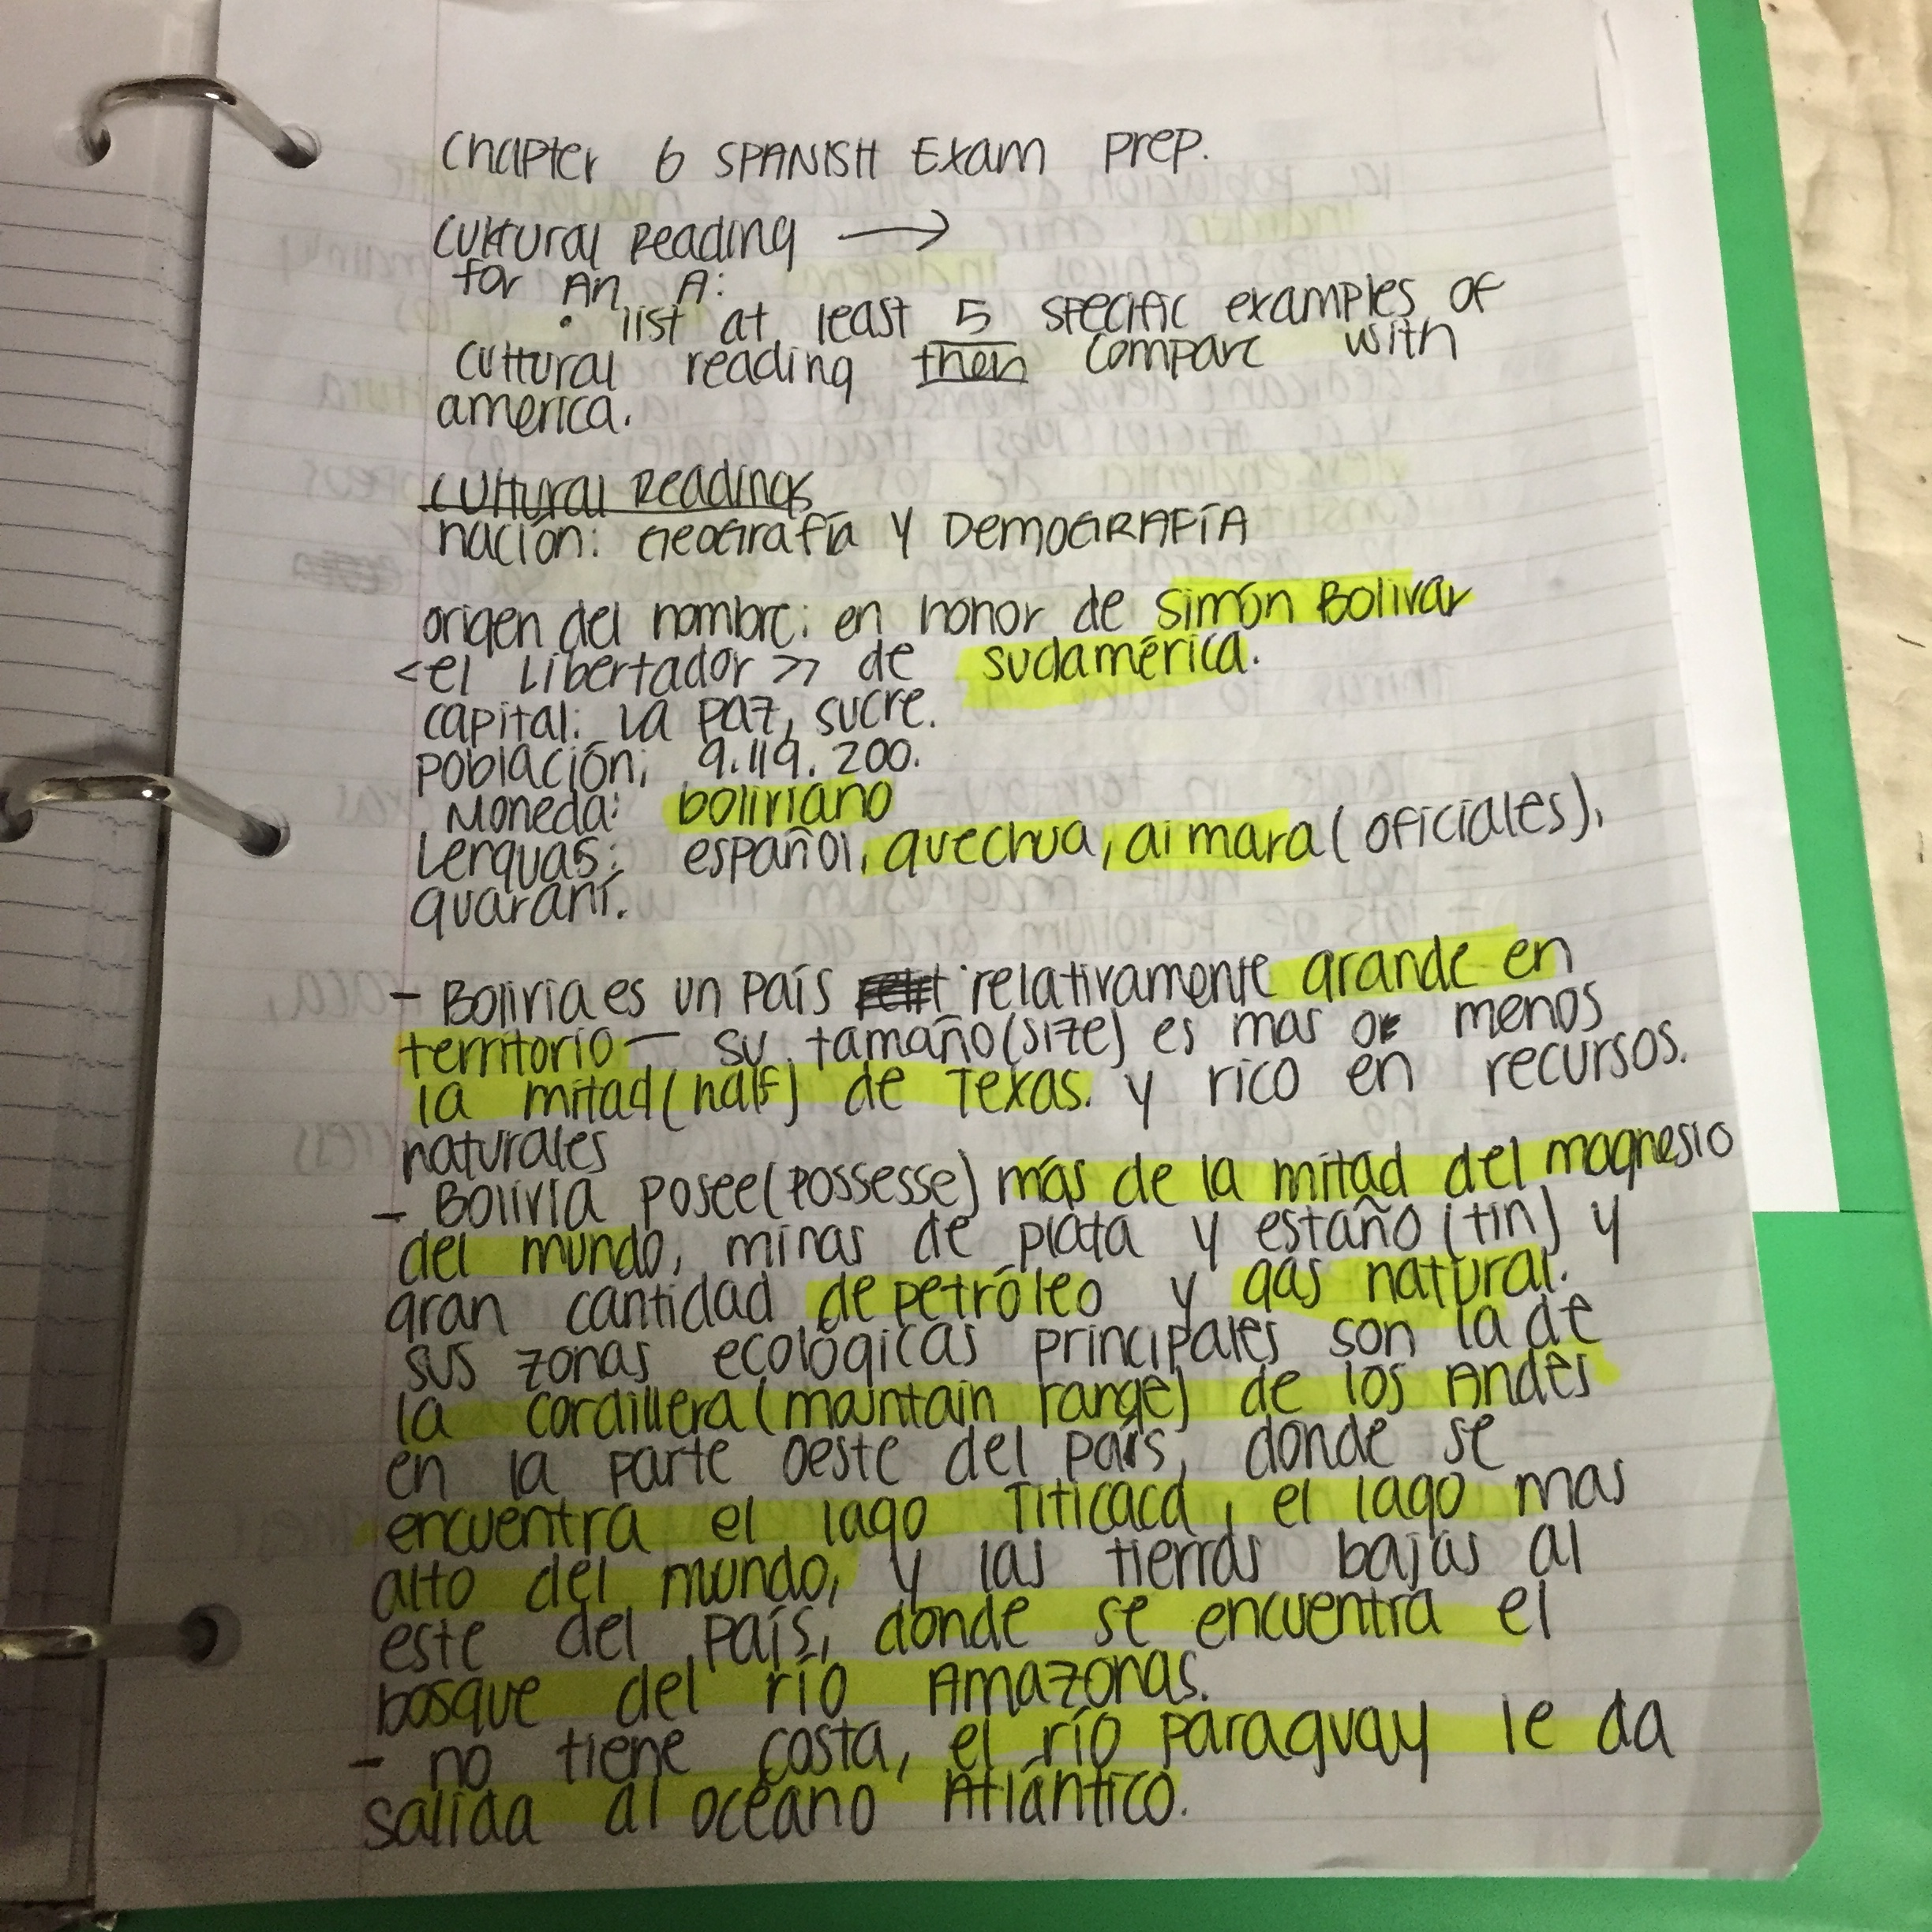 Chapter 6 SPANISH Exam prep.
Cultural Reading →
for An A:
• list at least 5 specific examples of
cultural reading then compare with
america.
Cultural Readings
nación: Geografía y DemoGRAFÍA
origen del nombre: en honor de Simón Bolivar
<el Libertador>> de sudamérica.
capital: La Paz, sucre.
población; 9.119.200.
Moneda: boliviano
Lenguas: español, quechua, aimara (oficiales),
guaraní.
- Bolivia es un país relativamente grande en
territorio - su tamaño (size) es mas o menos
la mitad (half) de Texas. y rico en recursos.
naturales
- Bolivia posee (possesse) más de la mitad del magnesio
del mundo, minas de plata y estaño (tin) y
gran cantidad de petróleo y gas natural.
sus zonas ecológicas principales son la de
la cordillera (maintain range) de los Andes
en la parte oeste del país, donde se
encuentra el lago Titicaca, el lago mas
alto del mundo, y las tierras bajas al
este del país, donde se encuentra el
bosque del río Amazonas.
- no tiene costa, el río Paraguay le da
salida al océano Atlántico.